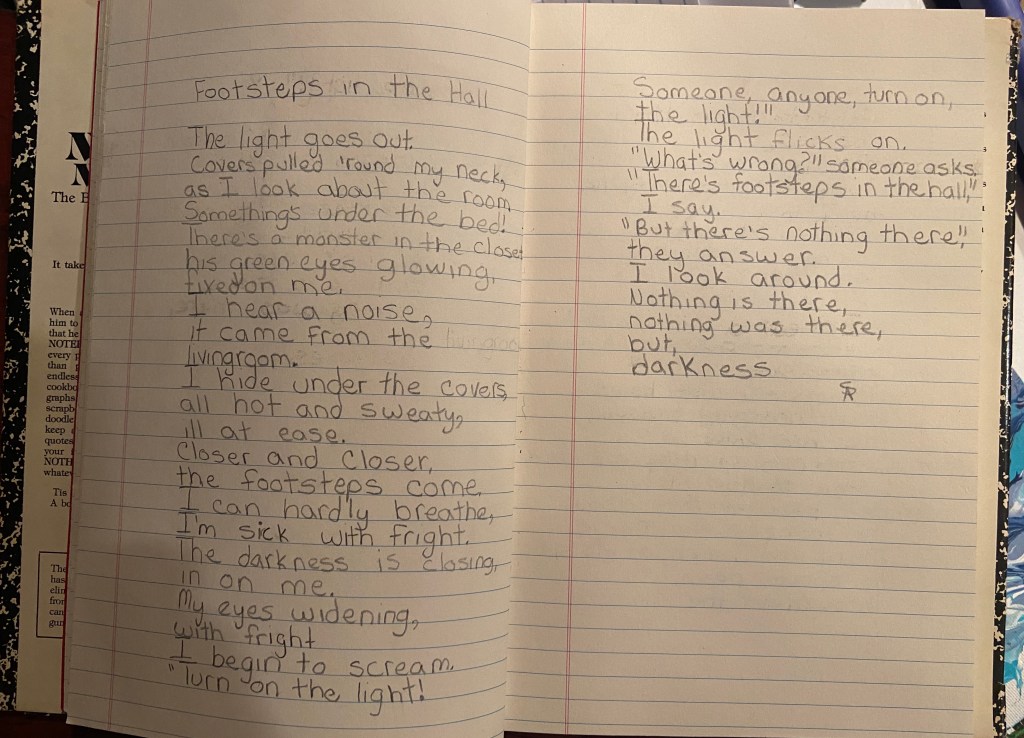 The B
It take
When
him to
that he
NOTE
every p
than
endles
cookbo
graphs
scrapb
doodle
keep
quotes
your
NOTH
whate
Tis
A bo
The
has
clin
from
can
gun
Footsteps in the Hall
The light goes out.
Covers pulled 'round my neck,
as I look about the room
Something's under the bed!
There's a monster in the closet
his green eyes glowing,
fixed on me.
I hear a noise,
it came from the
livingroom.
I hide under the covers,
all hot and sweaty,
ill at ease.
Closer and closer,
the footsteps come.
I can hardly breathe,
I'm sick with fright.
The darkness is closing,
in on me.
My eyes widening,
with fright
I begin to scream.
"Turn on the light!
Someone, anyone, turn on,
the light!!"
The light flicks on.
"What's wrong?" someone asks.
"There's footsteps in the hall,"
I say.
"But there's nothing there",
they answer.
I look around.
Nothing is there,
nothing was there,
but,
darkness
SR